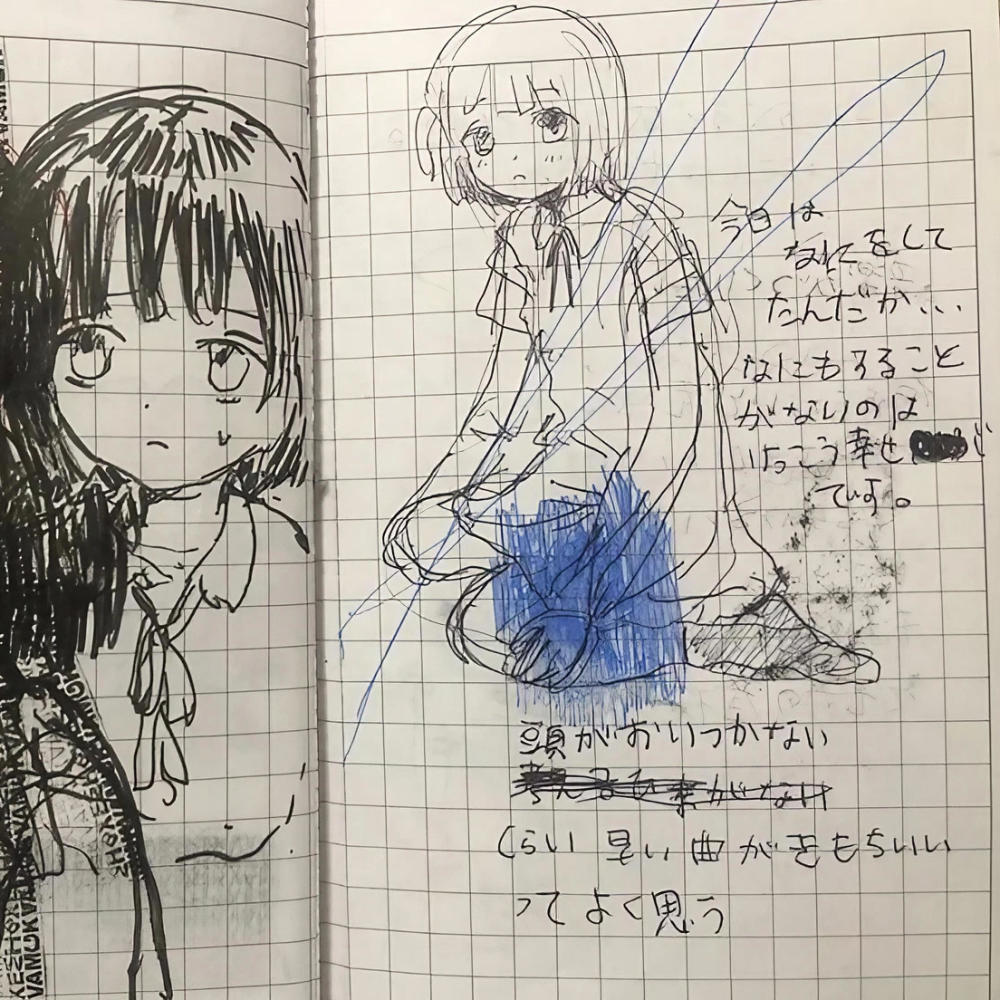 今日は
なにをして
たんだか、、、
なにもすること
がないのは
けっこう幸せ
です。
頭がおいつかない
くらい早い曲がきもちいい
ってよく思う